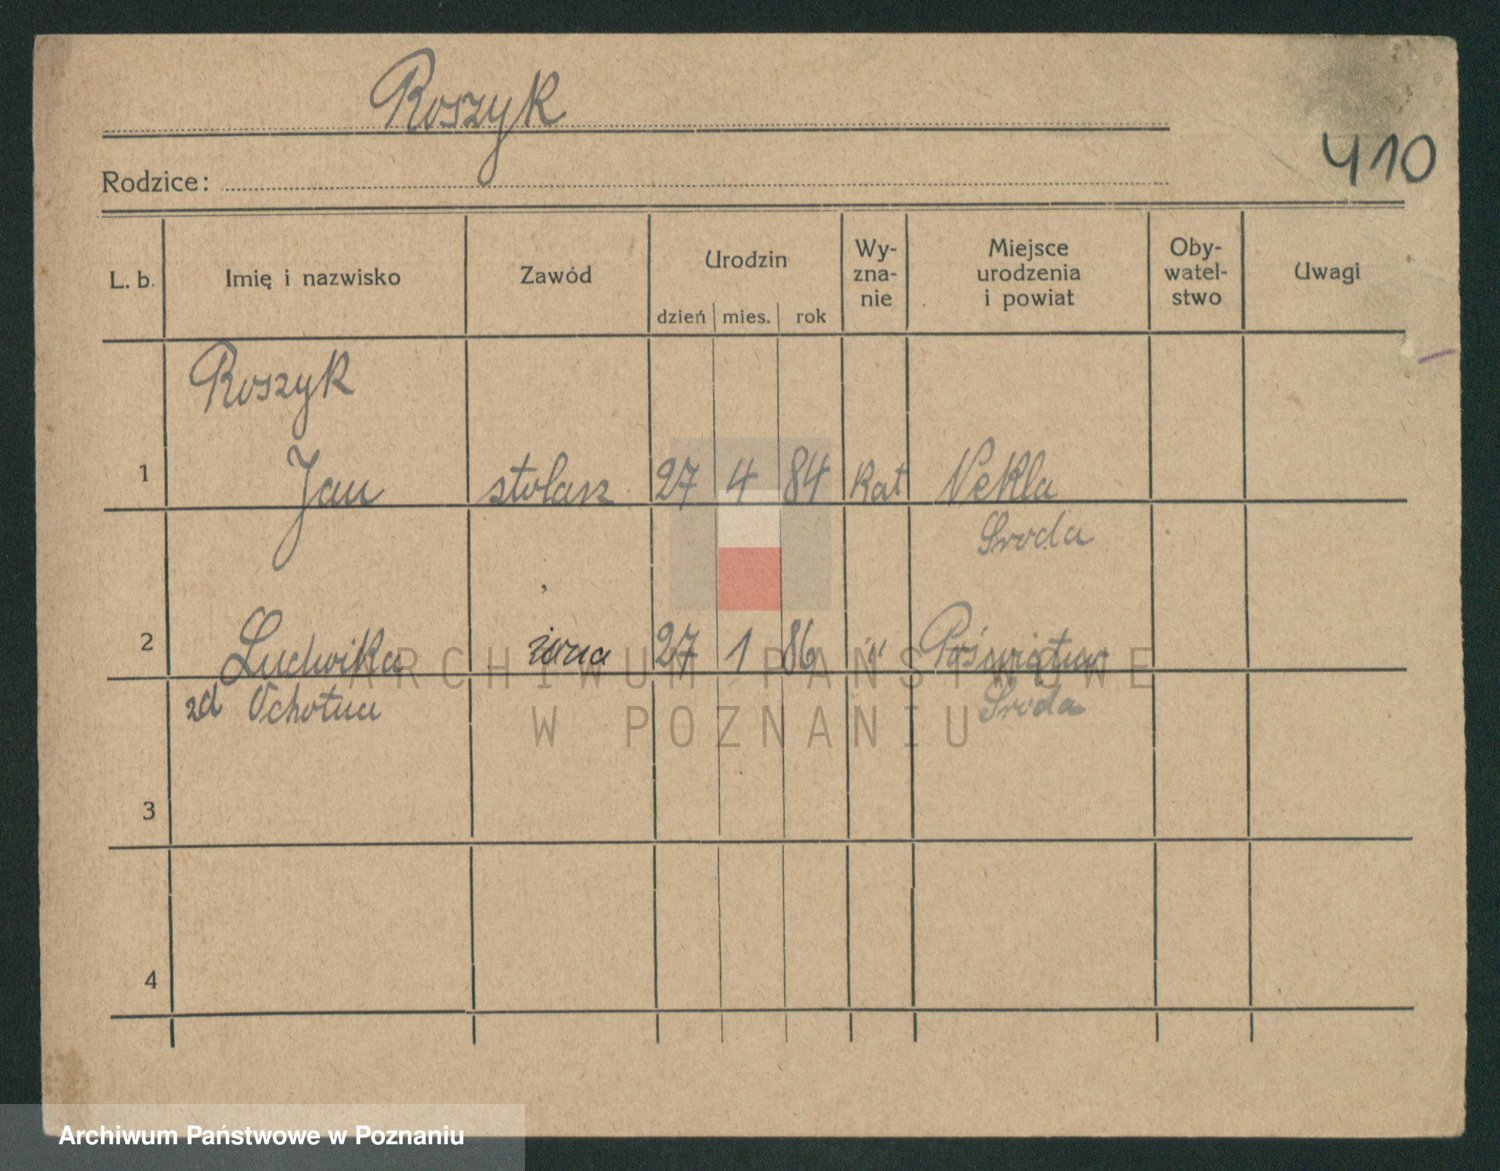 Roszyk
410
Rodzice:
L. b. Imię i nazwisko Zawód Urodzin dzień mies. rok Wy-zna-nie Miejsce urodzenia i powiat Oby-watel-stwo Uwagi
Roszyk
1 Jan stolarz 27 4 84 kat Nekla
Sroda
2 Ludwika żona 27 1 86 " Poświątne
zd Ochotna Sroda
3
4
ARCHIWUM PAŃSTWOWE
W POZNANIU
Archiwum Państwowe w Poznaniu